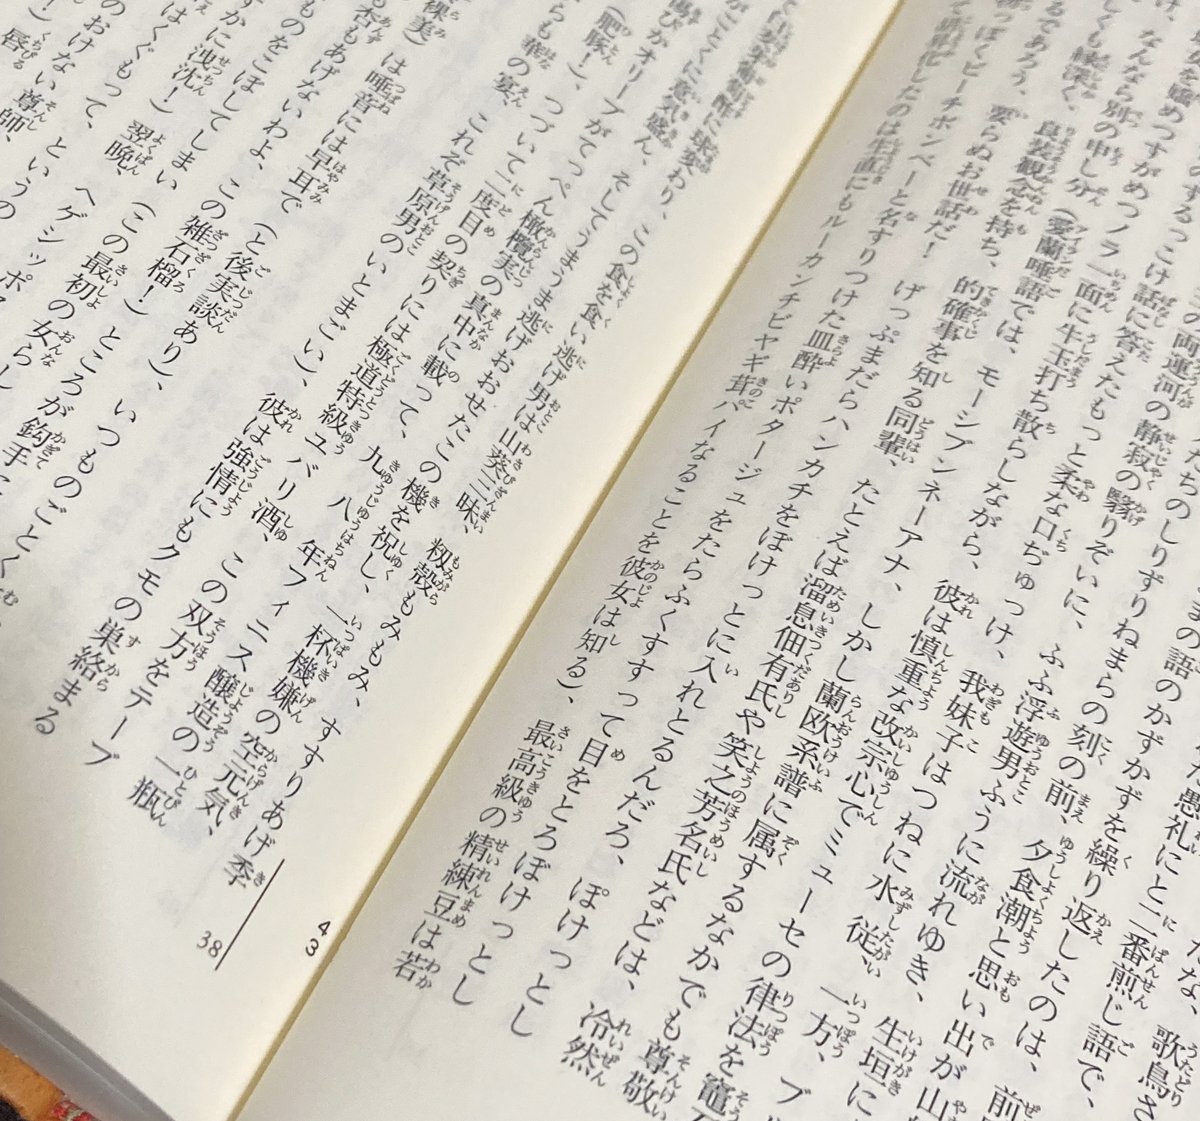 だな、歌鳥さ
た愚礼にと二番煎じ語で、
の語のかずかずを繰り返したのは、前
たちのしりずりねまらの刻の前、夕食潮と思い出が山
この両運河の静寂の翳りぞいに、ふふ浮遊男ふうに流れゆき、生垣に
のするっこけ話に答えたもっと柔な口ぢゅっけ、我妹子はつねに水従、一方、ブ
めつすがめつノラ一面に牛玉打ち散らしながら、彼は慎重な改宗心でミューセの律法を竈
け、なんなら別の申し分(愛蘭唾語では、モーシブンネーアナ、しかし蘭欧系譜に属するなかでも尊敬
しくも縁深く、良装観念を持ち、的確事を知る同輩、たとえば溜息佃有氏や笑之芳名氏などは、冷然
るであろう、要らぬお世話だ! げっぷまだらハンカチをぽけっとに入れとるんだろ、ぽけっとし
っぽくピーチボンベーと名すりつけた皿酔いポタージュをたらふくすすって目をとろぼけっとし
化したのは生直にもルーカンチビヤギ茸パイなることを彼女は知る)、最高級の精練豆は若
酔に球変わり、この食を食い逃げ男は山葵三昧、籾殻もみもみ、すすりあげ季
がごとくに意気盛ん、そしてうまうま逃げおおせたこの機を祝し、一杯機嫌の空元気、
びかオリーブがてっぺん橄欖実の真中に載って、九八年フィニス醸造の一瓶
(肥豚!)、つづいて二度目の契りには極道特級ユバリ酒、この双方をテーブ
らも華の宴、これぞ草原男のいとまごい)、彼は強情にもクモの巣絡まる
裸美)は唾音には早耳で(と後実談あり)、
杏もあげないわよ、この雑石榴!)ところが鈎手に
ものをこぼしてしまい(この最初の女らし
すかに洩沈!)翌晩、いつものごとく
はぐくもって、ヘゲシッポ
おけない尊師、というの
!)唇
師、
43
38